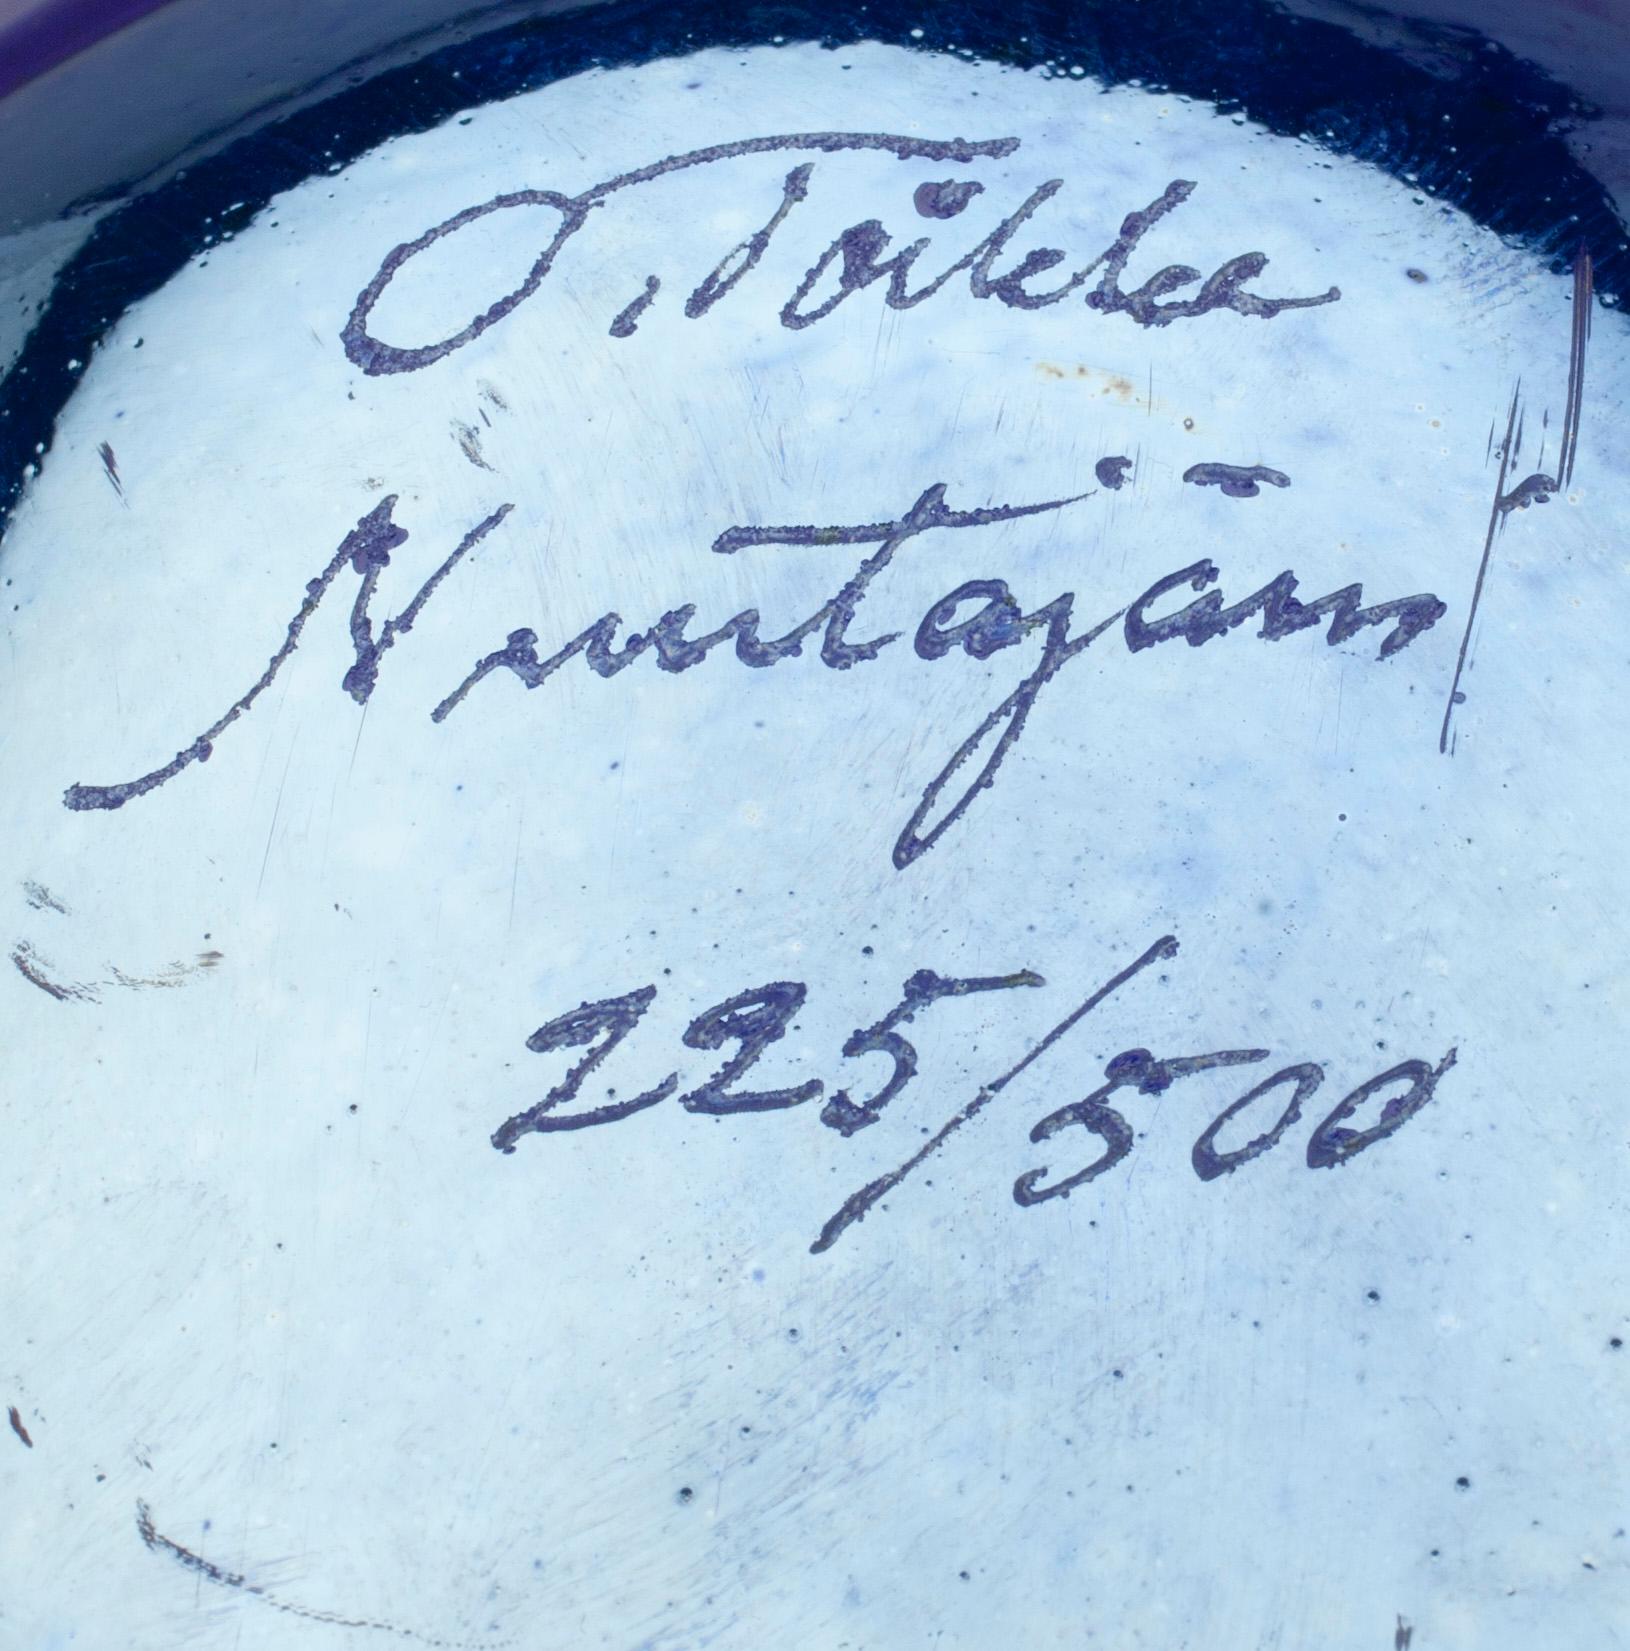 O. Toikka
Nuutajärvi
225/500